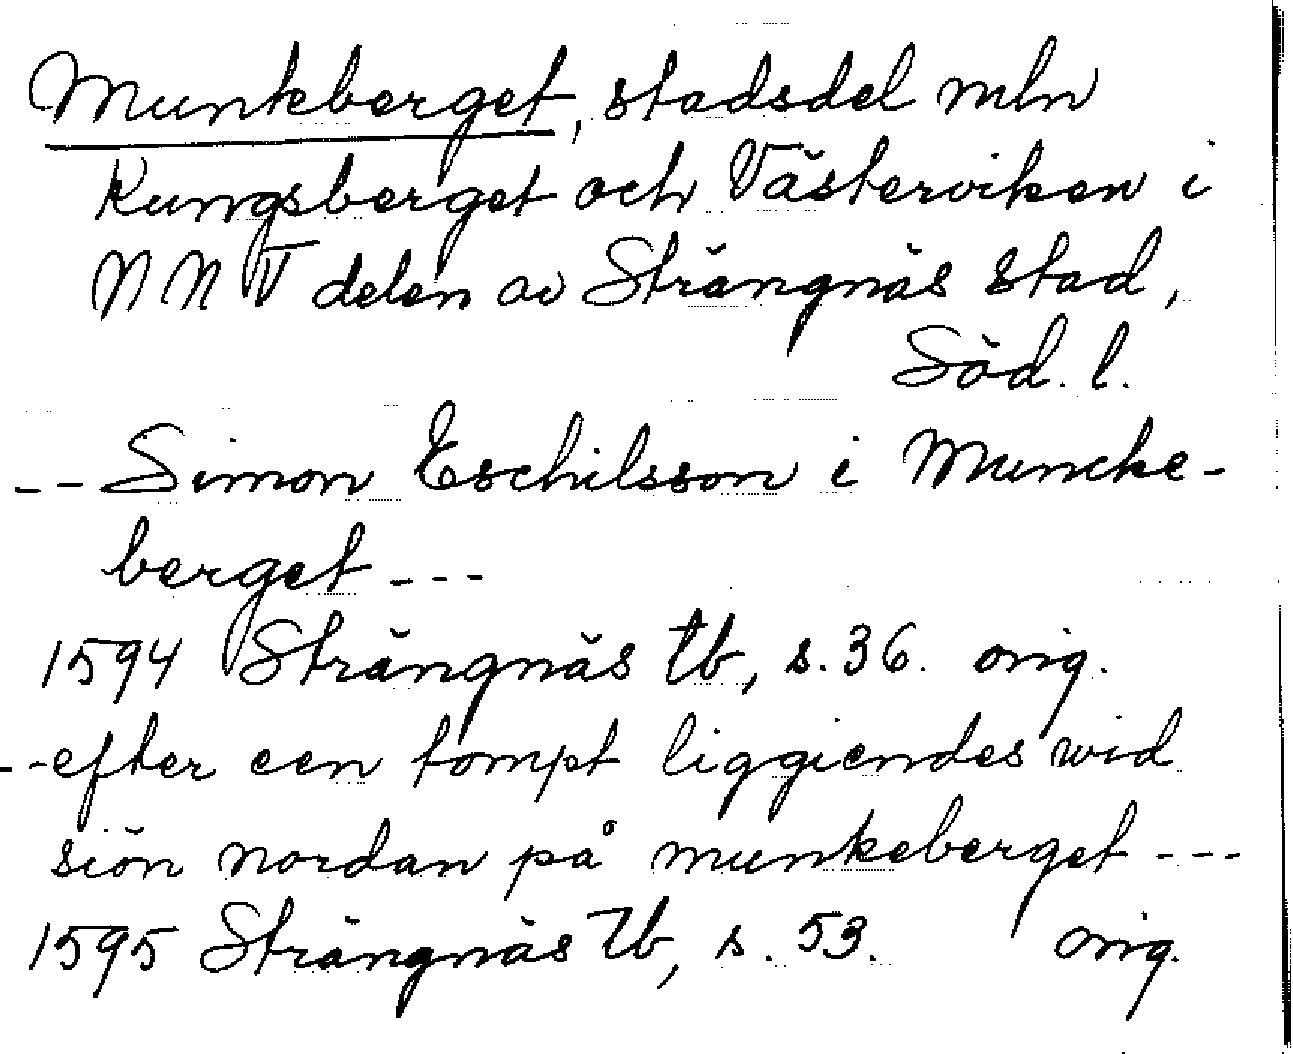 Munkberget, stadsdel mln
Kungsberget och Västerviken i
N N V delen av Strängnäs stad,
Söd. l.
-- Simon Eschilsson i Muncke-
berget ---
1594 Strängnäs tb, s. 36. orig.
-- efter een tompt liggiendes wid
siön nordan på munkeberget ---
1595 Strängnäs tb, s. 53. orig.